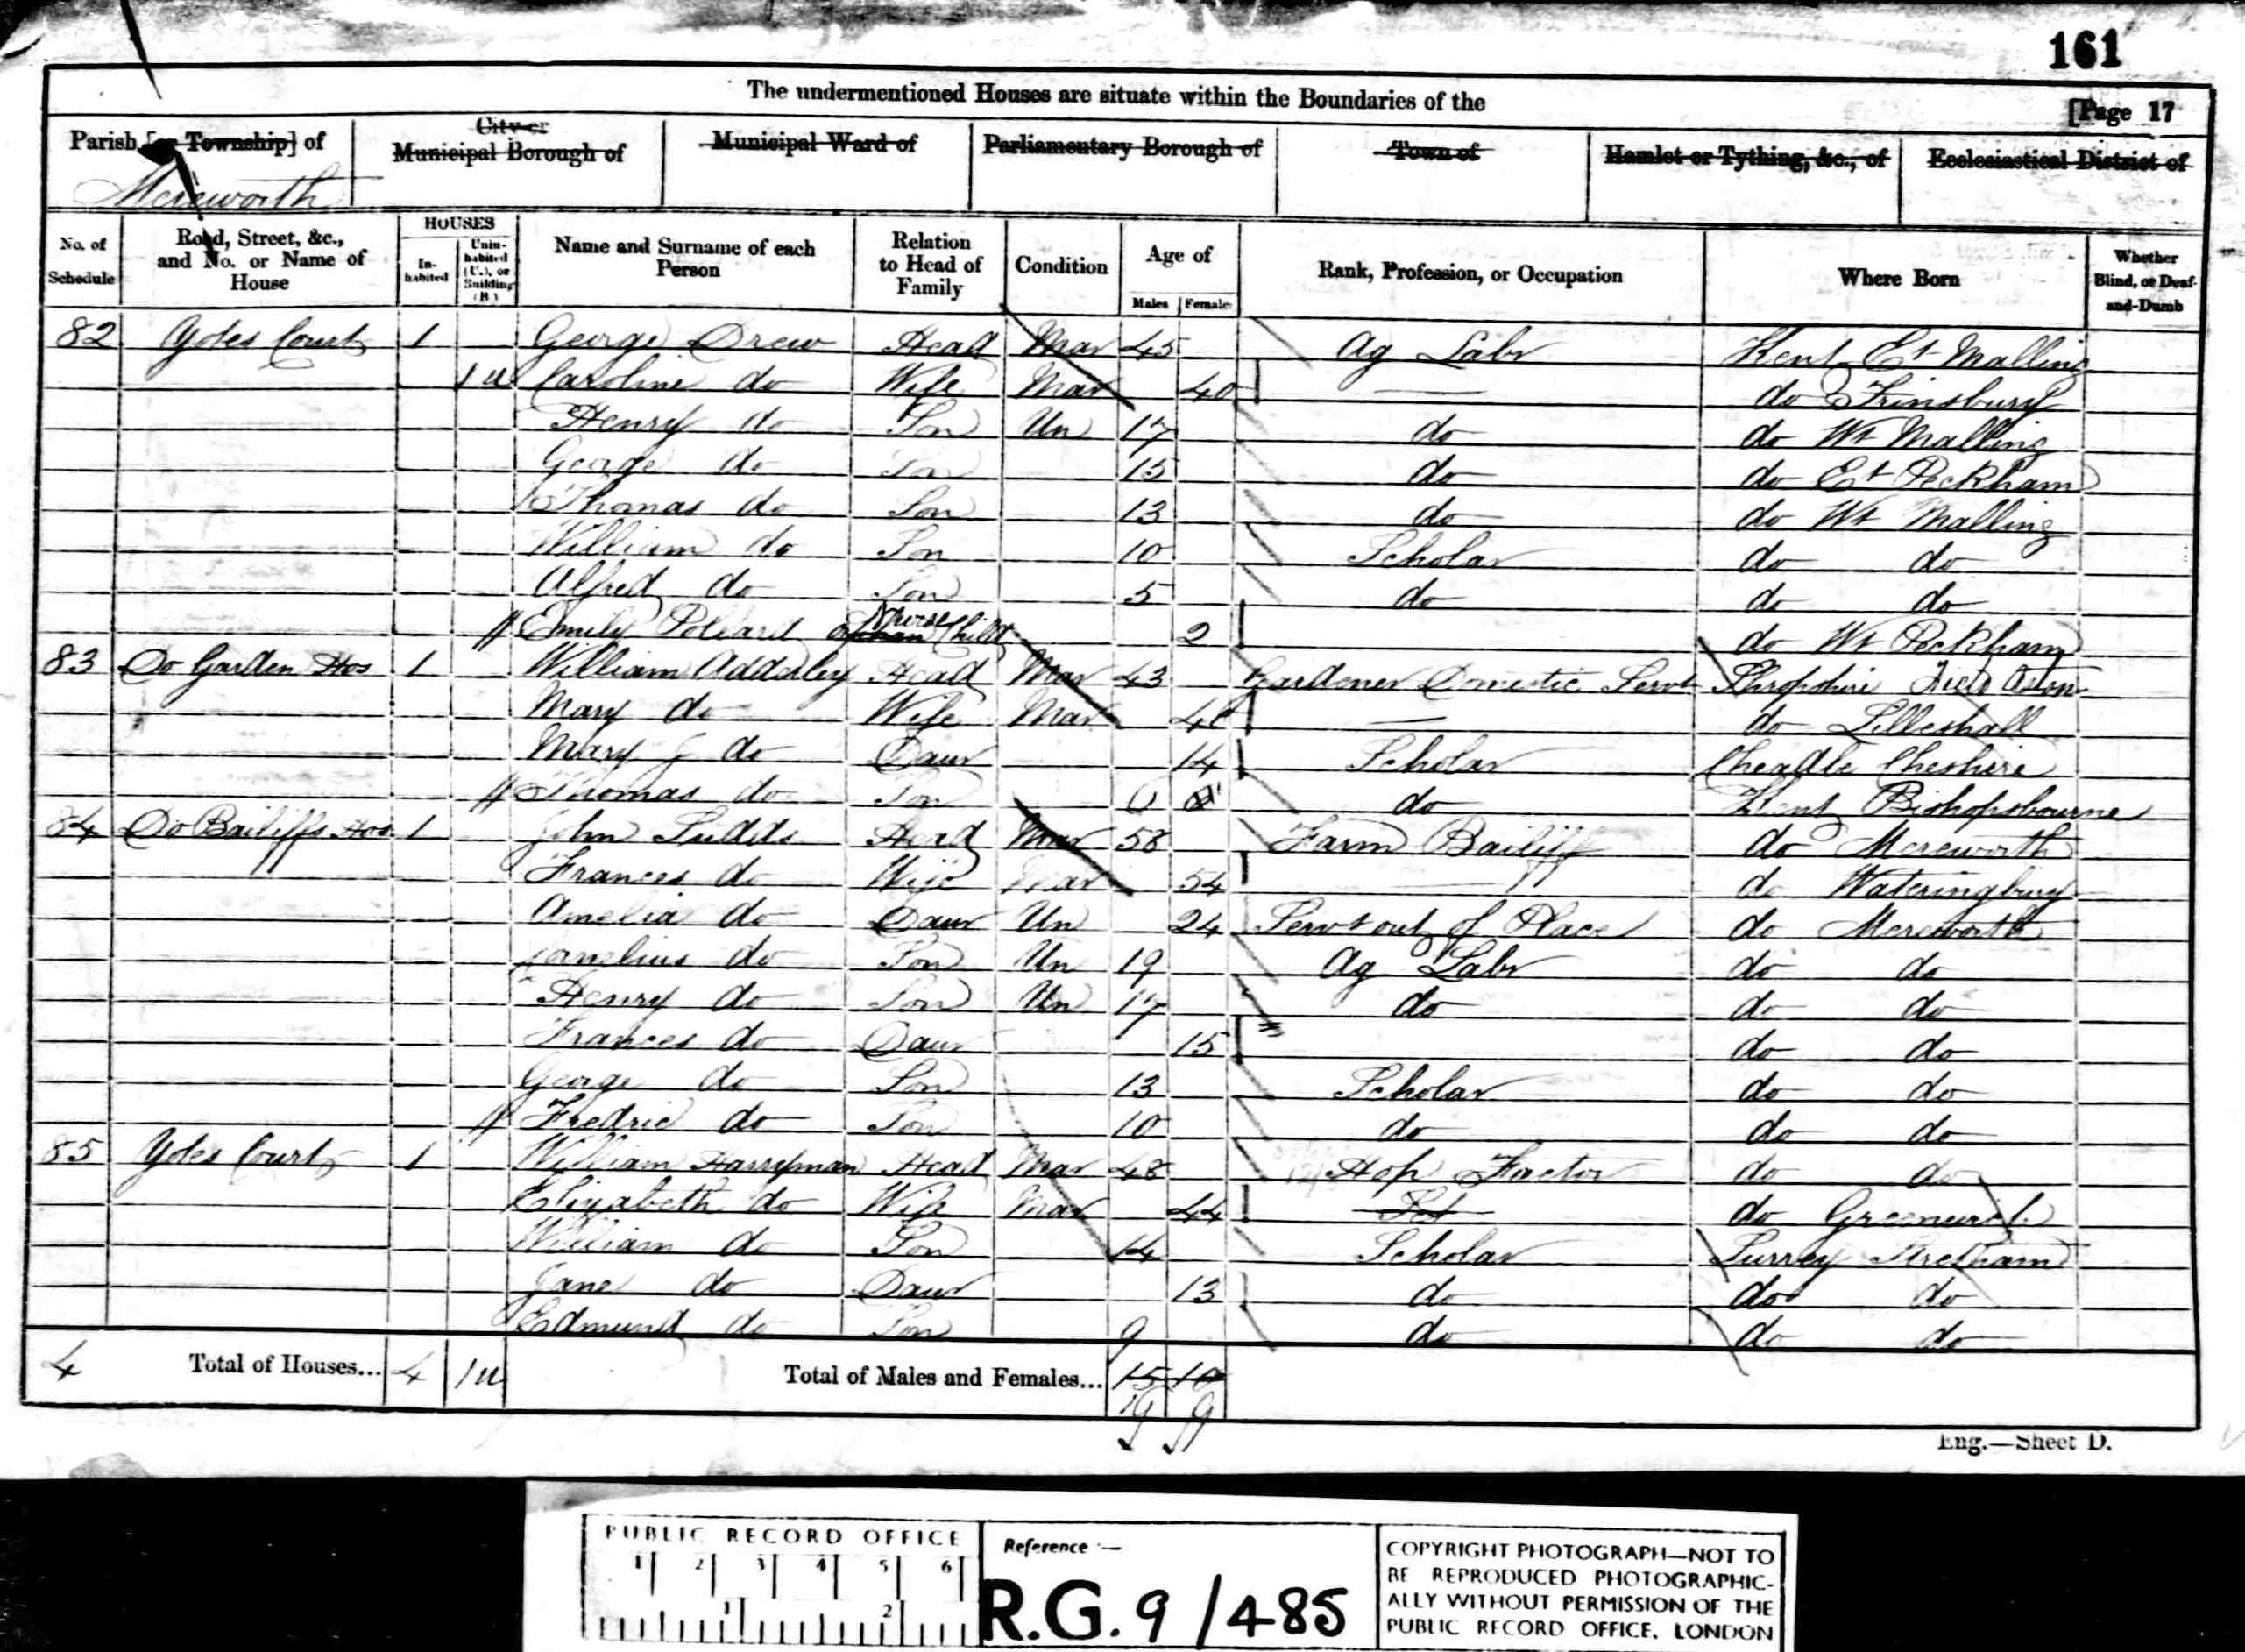 161
The undermentioned Houses are situate within the Boundaries of the
[Page 17
Parish [or Township] of
City or Municipal Borough of
Municipal Ward of
Parliamentary Borough of
Town of
Hamlet or Tything, &c., of
Ecclesiastical District of
Mereworth
No. of Schedule
Road, Street, &c., and No. or Name of House
HOUSES
In-habited
Unin-habited (U.), or Building (B.)
Name and Surname of each Person
Relation to Head of Family
Condition
Age of
Males
Females
Rank, Profession, or Occupation
Where Born
Whether Blind, or Deaf-and-Dumb
82 Yotes Court 1 George Drew Head Mar 45 Ag Labr Kent Et Malling
1 u Caroline do Wife Mar 40 — do Frinsbury
Henry do Son Un 17 do do Wt Malling
George do Son 15 do do Et Peckham
Thomas do Son 13 do do Wt Malling
William do Son 10 Scholar do do
Alfred do Son 5 do do do
Emily Pollard Nurse Child 2 do Wt Peckham
83 Do Garden Hos 1 William Adderley Head Mar 43 Gardener Domestic Servt Shropshire Aston
Mary do Wife Mar — do Lilleshall
Mary J do Daur 14 Scholar Cheadle Cheshire
Thomas do Son do Kent Bishopsbourne
84 Do Bailiffs Hos 1 John Sudds Head Mar 58 Farm Bailiff do Mereworth
Frances do Wife Mar 54 — do Wateringbury
Amelia do Daur Un 24 Servt out of Place do Mereworth
Cornelius do Son Un 19 Ag Labr do do
Henry do Son Un 17 do do do
Frances do Daur 15 do do
George do Son 13 Scholar do do
Fredric do Son 10 do do do
85 Yotes Court 1 William Harryman Head Mar 48 Hop Factor do do
Elizabeth do Wife Mar 44 do Greenwich
William do Son 14 Scholar Surrey Stretham
Jane do Daur 13 do do do
Edmund do Son 9 do do do
4 Total of Houses... 4 1 u Total of Males and Females... 15 10
9
Eng.—Sheet D.
PUBLIC RECORD OFFICE
1 2 3 4 5 6
1 2
Reference :—
R.G. 9/485
COPYRIGHT PHOTOGRAPH—NOT TO
BE REPRODUCED PHOTOGRAPHIC-
ALLY WITHOUT PERMISSION OF THE
PUBLIC RECORD OFFICE, LONDON